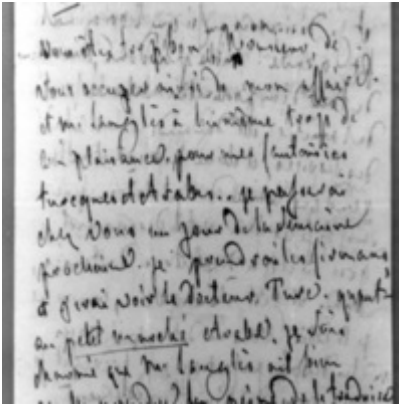 vous êtes trop bon Monsieur de
vous occuper ainsi de mon affaire.
et mr Langlès a lui même trop de
complaisance. pour mes fantaisies
turcques et Arabes.. je passerai
chez vous un jour de la semaine
prochaine. je prendrai les firmans
& j'irai voir le docteur Turc. quant
au petit marché Arabe. je suis
charmé que Mr Langlès ait bien